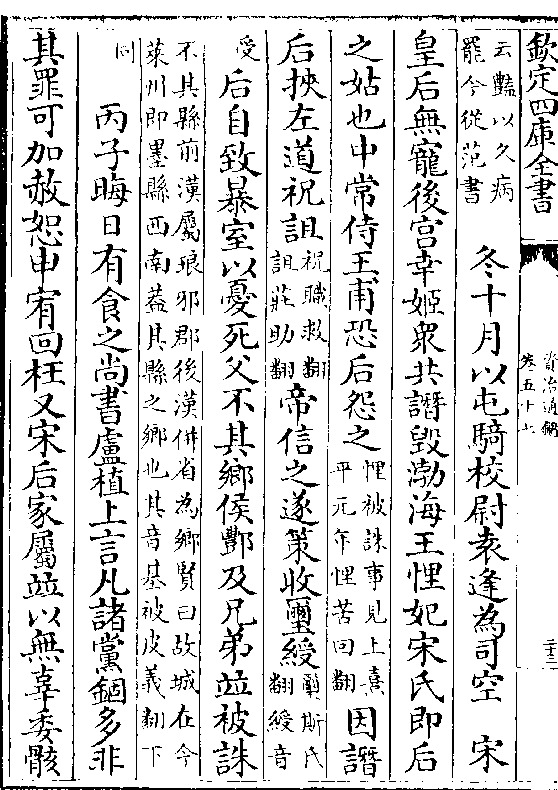 欽定四庫全書
資治通鑑
卷五十七
二十三
云豔以久病
罷今從范書
冬十月以屯騎校尉袁逢為司空　宋
皇后無寵後宮幸姬衆共譖毀渤海王悝妃宋氏即后
之姑也中常侍王甫恐后怨之
悝被誅事見上熹
平元年悝苦回翻
因譖
后挾左道祝詛
祝職救翻
詛莊助翻
帝信之遂策收璽綬
璽斯氏
翻綬音
受
后自致暴室以憂死父不其鄉侯酆及兄弟並被誅
不其縣前漢屬琅邪郡後漢併省為鄉賢曰故城在今
萊州即墨縣西南蓋其縣之鄉也其音基被皮義翻下
同
丙子晦日有食之尚書盧植上言凡諸黨錮多非
其罪可加赦恕申宥回枉又宋后家屬並以無辜委骸